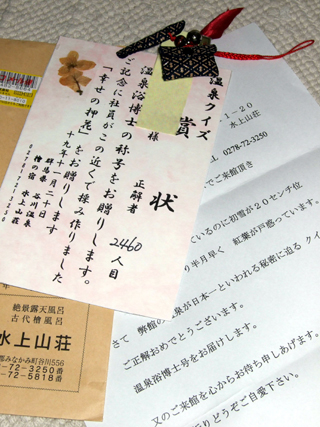 温泉クイズ
賞状
様
温泉浴博士の称号をお贈りします
ご記念に社員がこの近くで採み作りました
「幸せの押花」をお贈りします。
正解者
2460人目
十九年十一月二十日
群馬県 谷川温泉
檜の宿 水上山荘
1-20
水上山荘
0278-72-3250
でご来館頂き
ているのに初雪が20センチ位
り半月早く 紅葉が戸惑っています。
さて 弊館の
泉が日本一といわれる秘密に迫る クイ
ご正解おめでとうございます。
温泉浴博士号をお届けします。
又のご来館を心からお待ち申しあげます。
折りどうぞご自愛下さい。
絶景露天風呂
古代檜風呂
水上山荘
郡みなかみ町谷川556
-72-3250番
-72-5818番